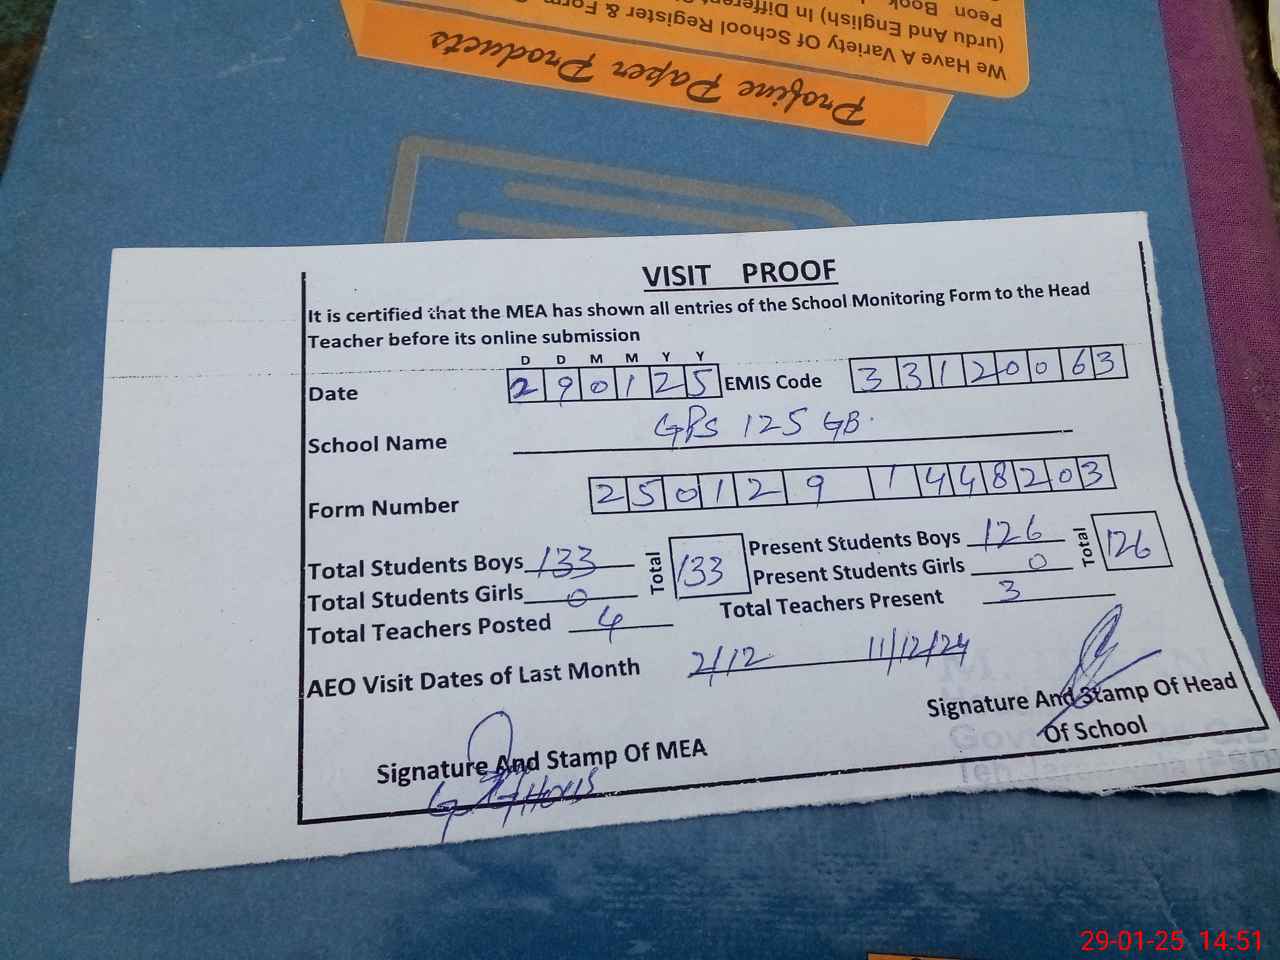 Peon Book
(urdu And English) In Different
We Have A Variety Of School Register & Form
Profine Paper Products
VISIT PROOF
It is certified that the MEA has shown all entries of the School Monitoring Form to the Head
Teacher before its online submission
D D M M Y Y
Date 2 9 0 1 2 5 EMIS Code 3 3 1 2 0 0 6 3
School Name GPS 125 GB.
Form Number 2 5 0 1 2 9 1 4 4 8 2 0 3
Total Students Boys 133 Total 133 Present Students Boys 126 Total 126
Total Students Girls 0 Present Students Girls 0
Total Teachers Posted 4 Total Teachers Present 3
AEO Visit Dates of Last Month 2/12 11/12/24
Signature And Stamp Of Head
Of School
Signature And Stamp Of MEA
29-01-25 14:51